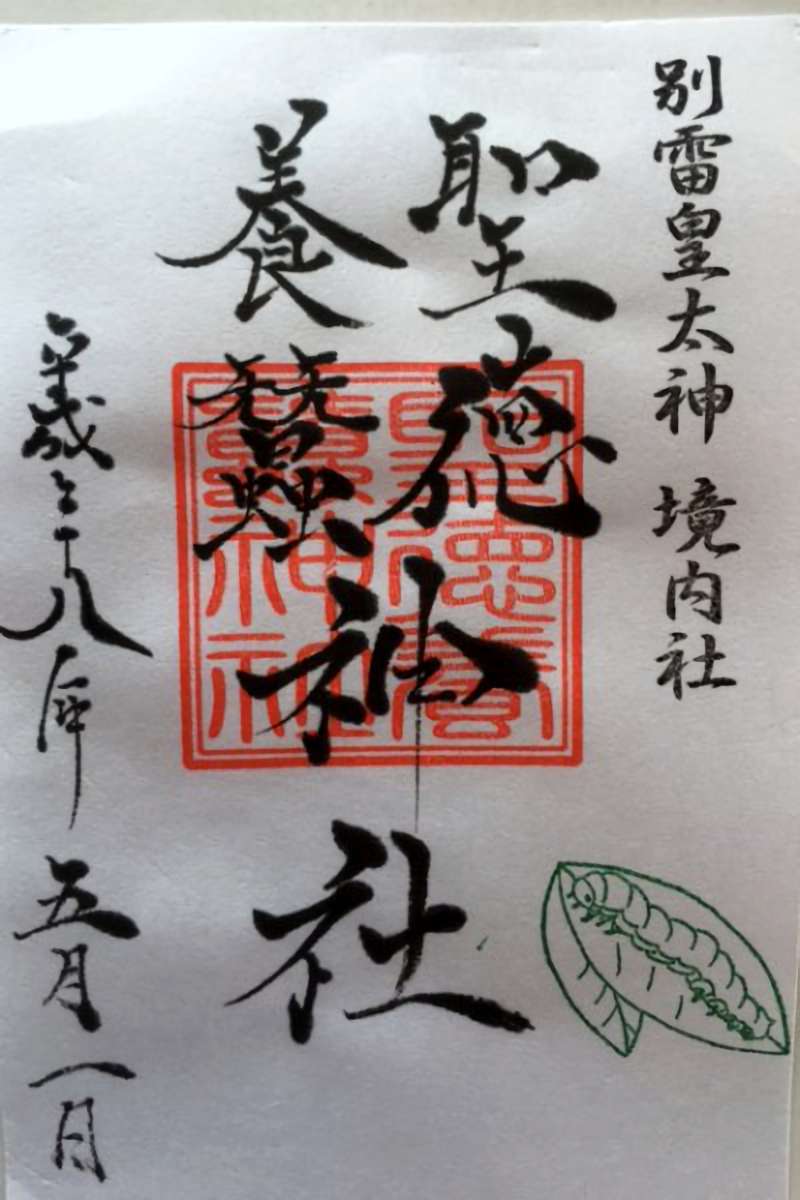 別雷皇太神 境内社
聖徳
養蠶
神社
平成二十八年五月一日
聖徳養
蠶神社